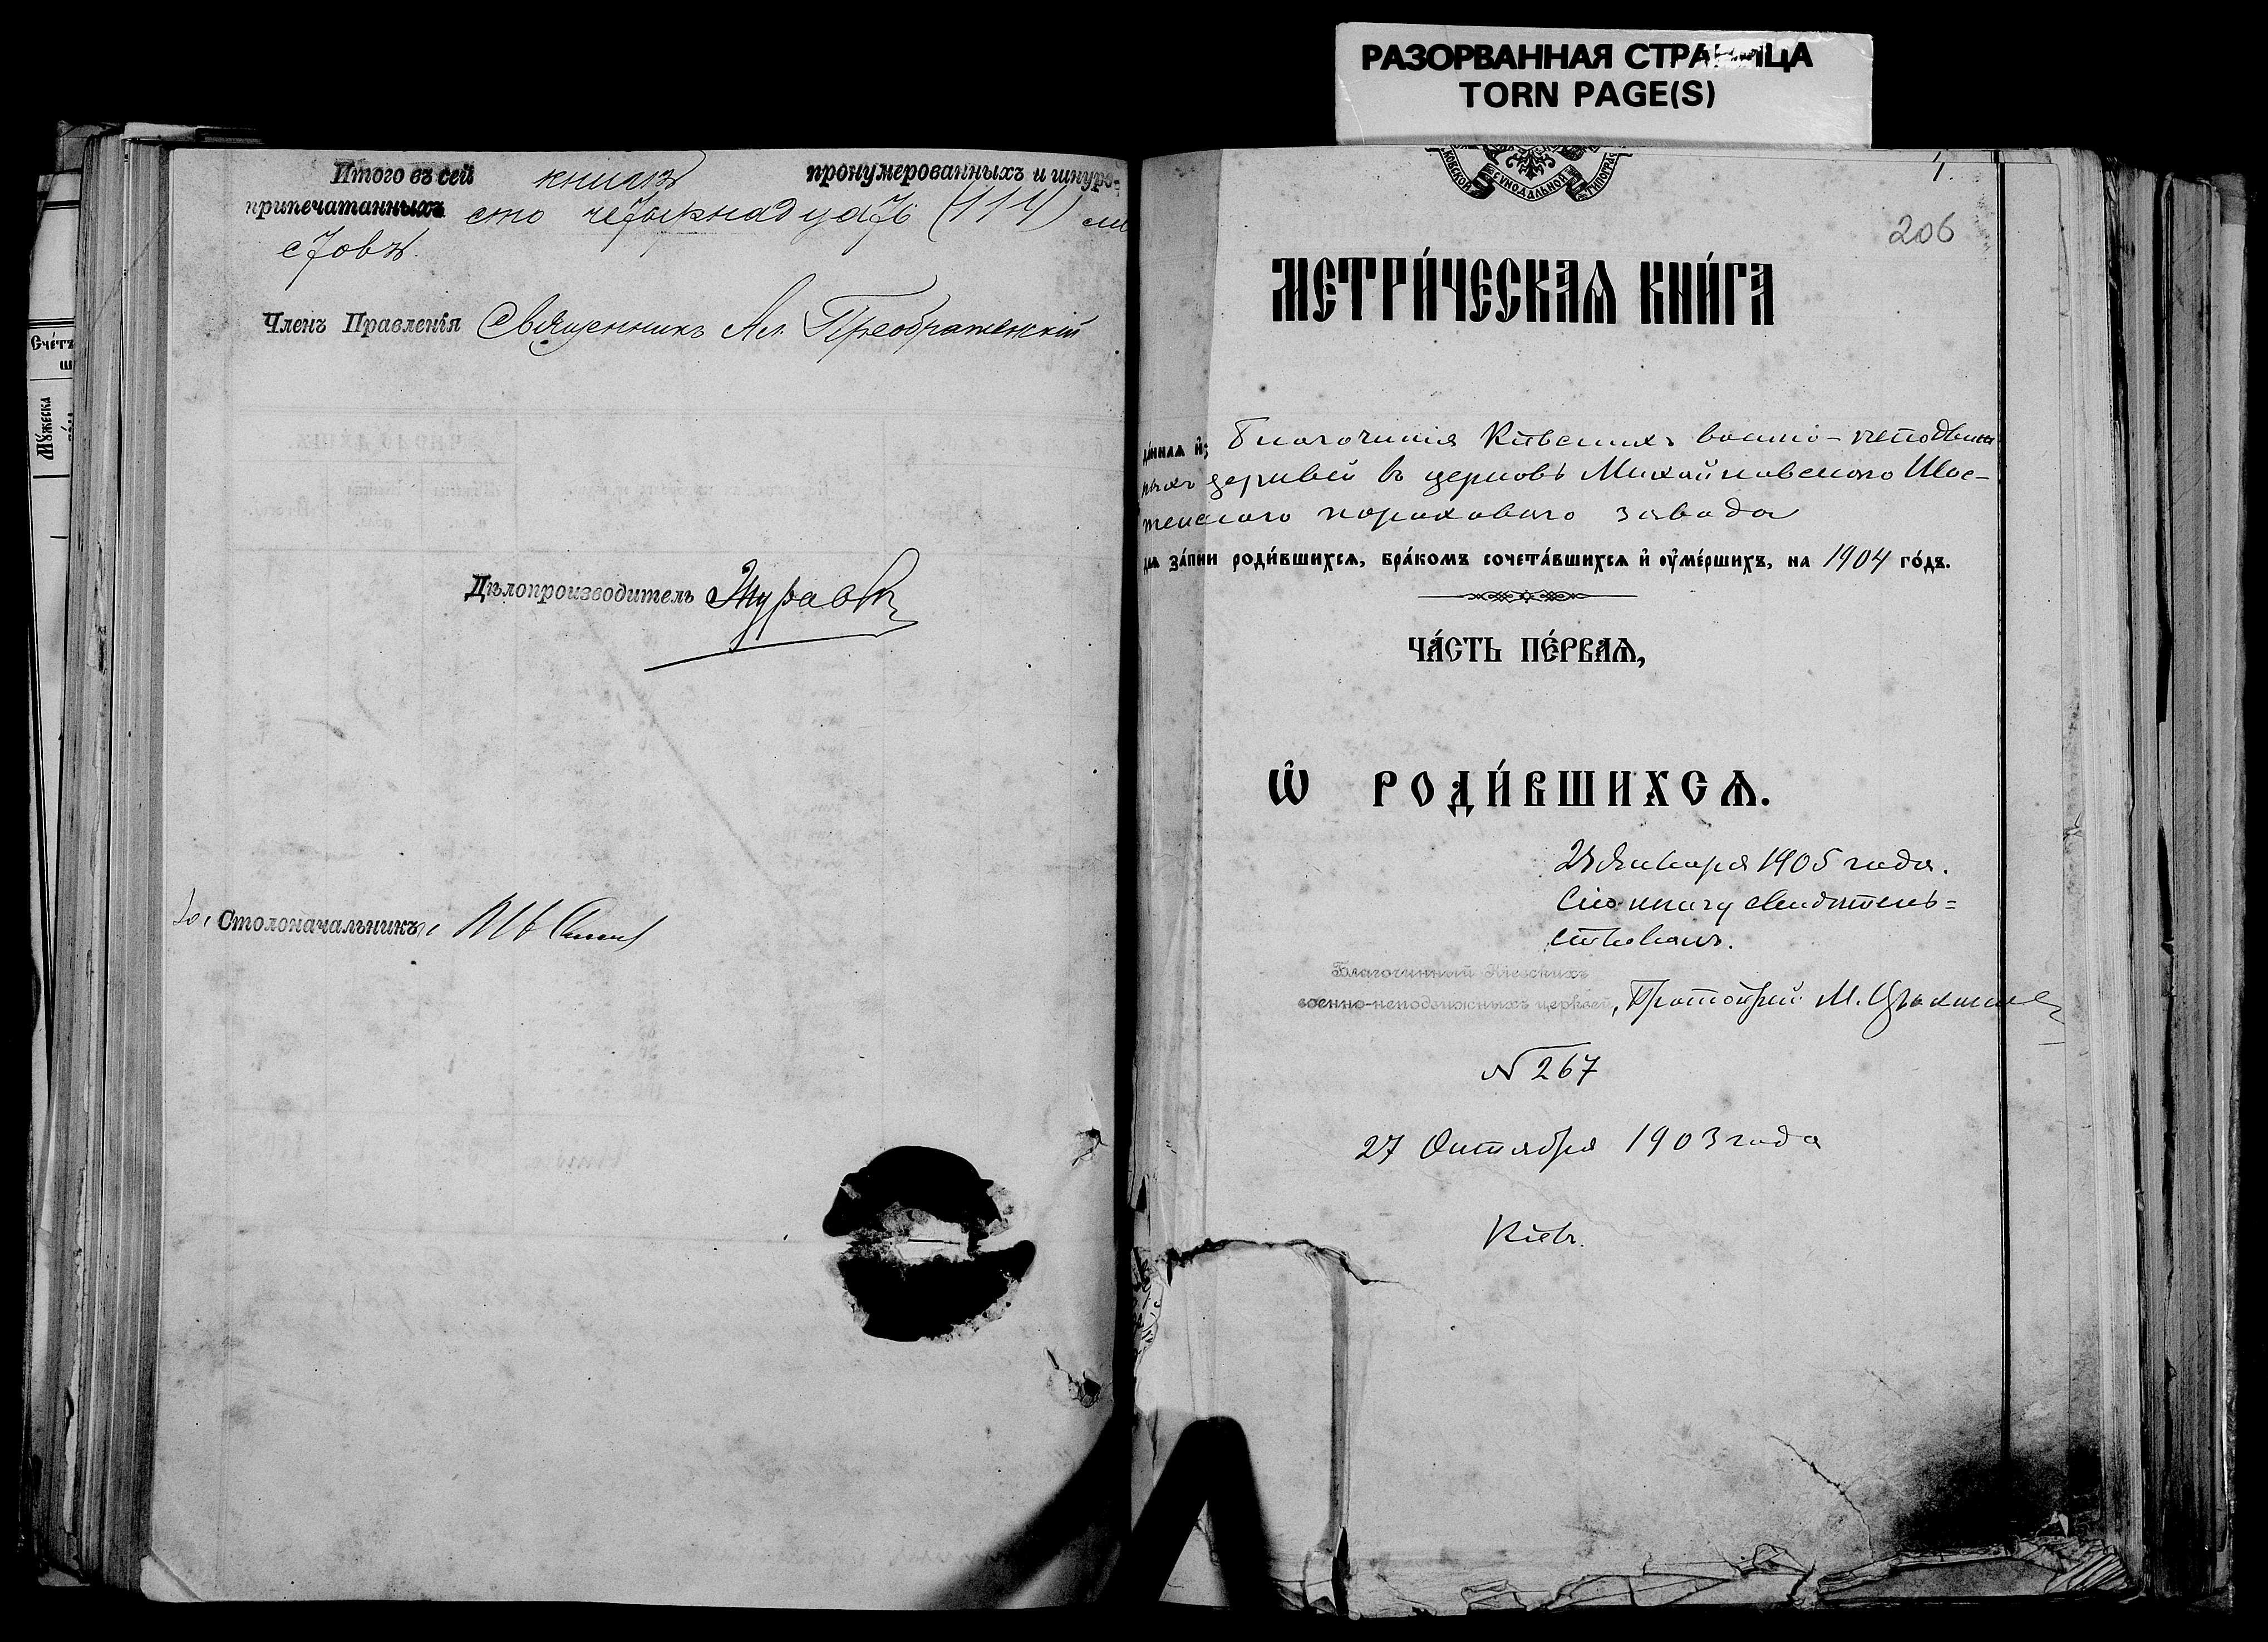 РАЗОРВАННАЯ СТРАНИЦА
TORN PAGE(S)
Счётъ
Мꙋжеска
Итого въ сей книгѣ пронумерованныхъ и шнуро-
припечатанныхъ сто четырнадцать (114) ли
стовъ.
Членъ Правленія Священникъ Ал. Преображенскій
Дѣлопроизводитель
Столоначальникъ
СѴНОДАЛЬНОЙ
206
МЕТРИ́ЧЕСКАѦ КНИ́ГА
да́ннаѧ Благочинія Кіевскихъ военно-неподвиж
ныхъ церквей въ церковь Михайловского Шос-
тенского порохового завода
длѧ за́писи роди́вшихсѧ, бра́комъ сочета́вшихсѧ и҆ ᲂу҆ме́ршихъ, на 1904 го́дъ.
ЧА́СТЬ ПЕ́РВАѦ,
Ѡ҆ РОДИ́ВШИХСѦ.
Января 1905 года.
Сію книгу свидѣтель=
ствовалъ.
Благочинный Кіевскихъ
военно-неподвижныхъ церквей, Протоіерей М.
№ 267
27 Октября 1903 года
Кіевъ.